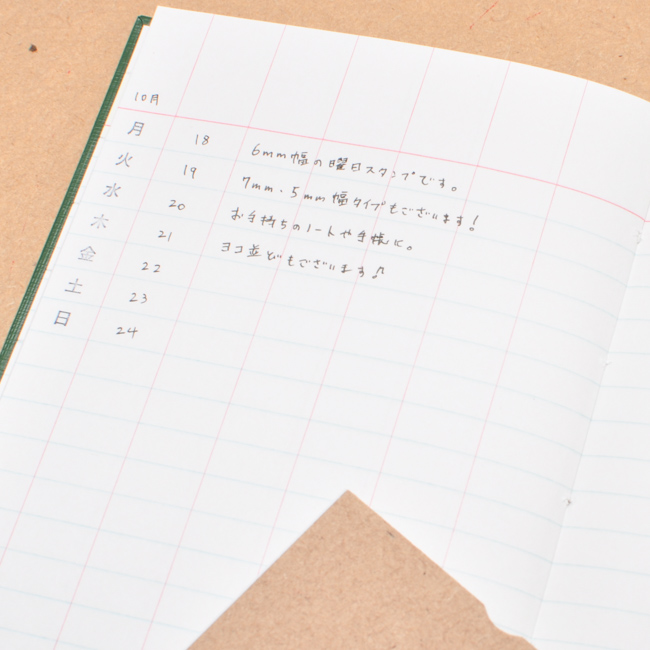 10月
月 18 6mm幅の曜日スタンプです。
火 19 7mm・5mm幅タイプもございます!
水 20 お手持ちのノートや手帳に。
木 21 ヨコ並びもございます♪
金 22
土 23
日 24